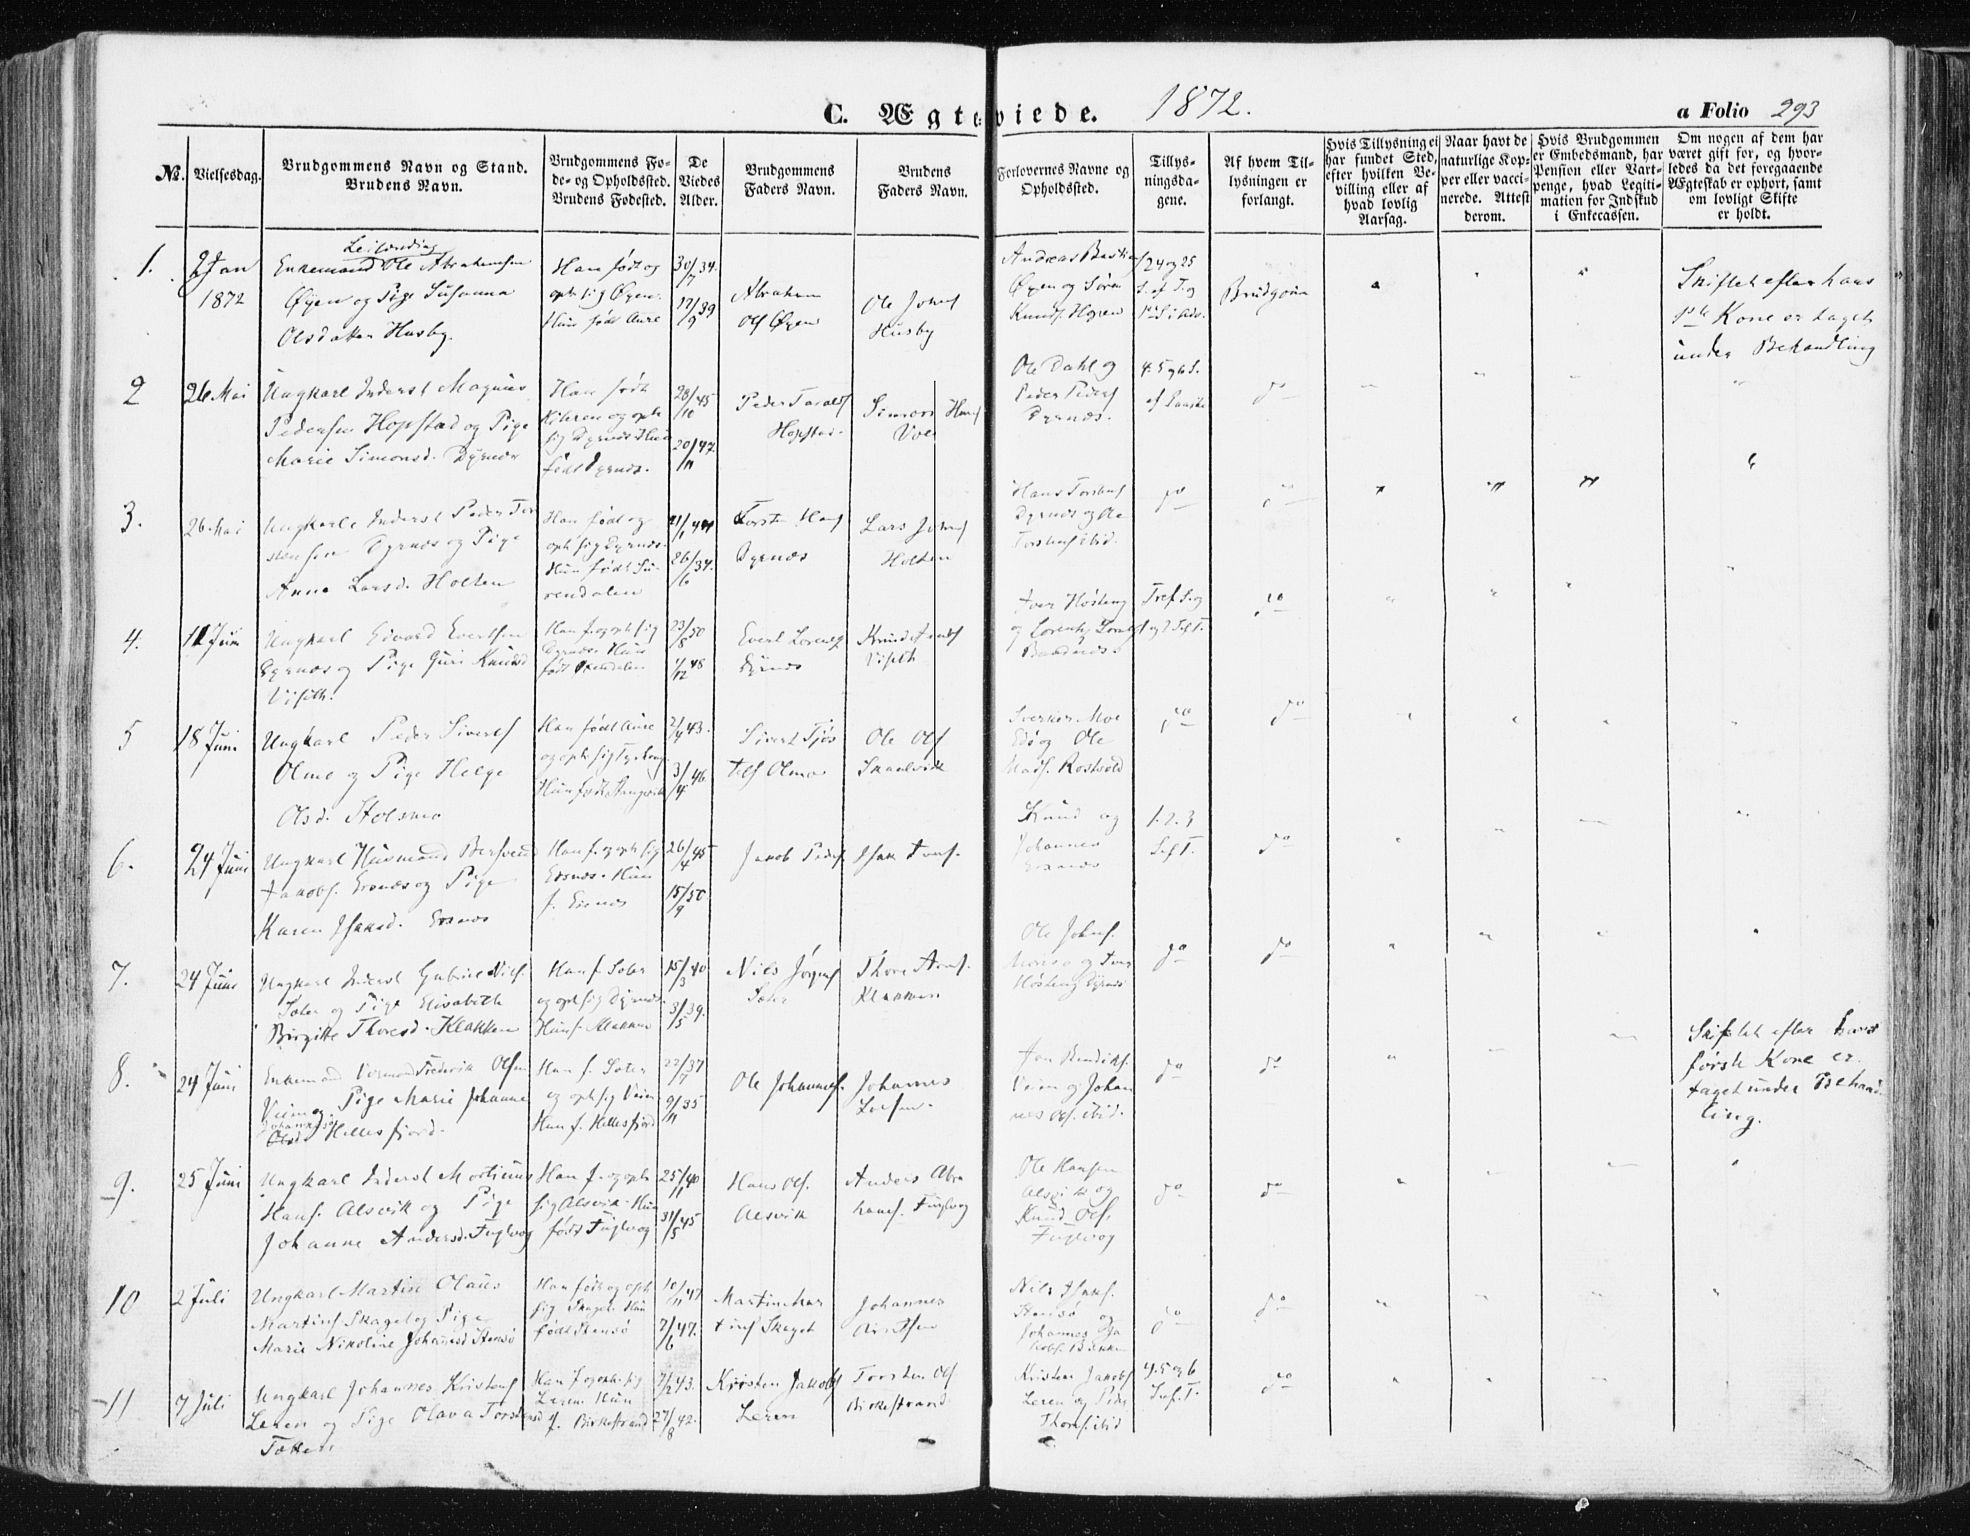 C. Ægteviede. 1872. a Folio 293
No. Vielsesdag. Brudgommens Navn og Stand. Brudens Navn. Brudgommens Føde- og Opholdssted. Brudens Fødested. De Viedes Alder. Brudgommens Faders Navn. Brudens Faders Navn. Forlovernes Navne og Opholdssted. Tillysningsdagene. Af hvem Tillysningen er forlangt. Hvis Tillysning ei har fundet Sted, efter hvilken Bevilling eller af hvad lovlig Aarsag. Naar havt de naturlige Kopper eller vaccinerede. Attest derom. Hvis Brudgommen er Embedsmand, har Pension eller Vartpenge, hvad Legitimation for Indskud i Enkecassen. Om nogen af dem har været gift før, og hvorledes da det foregaaende Ægteskab er ophørt, samt om lovligt Skifte er holdt.
1. 2 Jan 1872
Leilænding
Enkemand Ole Abrahamsen
Øyen og Pige Susanna
Olsdatter Husby.
Han født og
oph sig Øyen.
Hun født Aure
30/7 34.
17/9 39
Abraham
Ols Øyen
Ole Johns
Husby
Andreas Bastians
Øyen og Søren
Knuds.
24 og 25
S. ef T. og
Brudgom
Skiftet efter hans
1ste Kone er taget
under Behandling
2 26 Mai
Ungkarl Inderst Magnus
Pedersen Hopstad og Pige
Marie Simonsd. Dyrnæs
Han født
og oph
sig Dyrnæs Hun
født Dyrnæs.
28/10 45
20/11 47.
Peder
Hopstad.
Simon Hans
Ole Dahl og
Peder Peders
Dyrnæs.
4. 5 og 6 S.
ef Paaske
do
3. 26. Mai
Ungkarl Inderst Peder Tor
stensen Dyrnæs og Pige
Anne Larsd. Holten
Han født og
oph sig Dyrnæs.
Hun født Su-
rendalen
21/1 44
26/6 37.
Torsten Hans
Dyrnæs
Lars Johns
Holten
Hans Torstens
Dyrnæs og Ole
Torstens ibid.
do do
4. 11 Juni
Ungkarl Edvard Evertsen
Dyrnæs og Pige Guri Knudsd
Han f. og oph sig
Dyrnæs Hun
født
23/8 50
1/12 48
Evert Lorents
Dyrnæs
Knud
Iver Høsteng
og Lorents
Tref. S. og
1 og 2 S ef T.
do
5 18 Juni
Ungkarl Peder Siverts
Olme og Pige Helge
Olsd. Stolsmo
Han født Aure
og oph sig
Hun født Stangvik
2/4 43.
3/4 46.
Sivert
Olme
Ole Ols
Sverker Moe
Edø og Ole
Mads. Rostvold
do do
6. 24 Juni
Ungkarl Husmand Bersvend
Jakobs. Ersnæs og Pige
Karen Isaksd. Ersnæs
Han f. og oph sig
Ersnæs. Hun
f. Ersnæs
26/4 45
15/9 50
Jakob Peders
Isak
Knud og
Johannes
Ersnæs
1. 2. 3
S ef T.
do
7. 24 Juni
Ungkarl Inderst Gabriel Niels.
Soter og Pige Elisabeth
Birgitte Thoresd. Klakken
Han f. Soter
og oph sig Dyrnæs
Hun f. Klakken
15/3 40
3/5 39.
Nils Jørgens
Soter
Thore
Klakken
Ole Johns.
og Iver
Høsteng Dyrnæs
do do
8. 24 Juni
Enkemand Frederik Olsen
Veien og Pige Marie Johanne
Johannesd
Olsd. Hellesfjord.
Han f. Soter
og oph sig Veien
Hun f. Hellesfjord
22/7 37
9/11 35
Ole Johannes.
Johannes
Larsen.
Jon Bendiks.
Veien og Johan
nes Ols. ibid.
do do
Skiftet efter hans
første Kone er
taget under Behand
ling.
9. 25 Juni
Ungkarl Inderst Mortinus
Hans. Alsvik og Pige
Johanne Andersd. Fuglvog
Han f. og oph
sig Alsvik. Hun
født Fuglvog
25/11 40
31/5 45
Hans Ols.
Alsvik
Anders Abra
hams. Fuglvog
Ole Hansen
Alsvik og
Knud Ols.
Fuglvog
do do
10 2 Juli
Ungkarl Martin Olaus
Martins Skaget og Pige
Marie Nikoline Johannesd Stensø
Han født og oph
sig Skaget. Hun
født Stensø
10/11 47
7/6 47.
Martin Mar
tins Skaget
Johannes
Berntsen
Nils Isaks.
Stensø og
Johannes Ja
kobs. Bakken
do do
11 7 Juli
Ungkarl Johannes Kristens
Leren og Pige Olava Torstensd
Han f. og oph. sig
Leren. Hun
f. Birkestrand
7/2 43.
27/8 42.
Kristen Jakobs
Leren
Torsten Ols
Birkestrand.
Kristen Jakobs
Leren og Peder
Thoms. ibid
4. 5 og 6
S. ef. T.
do